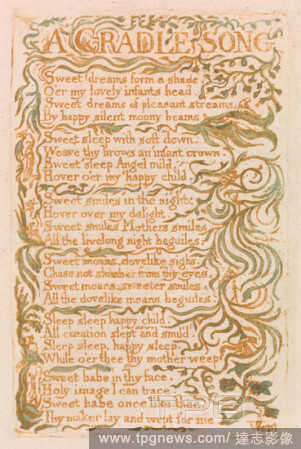 A CRADLE SONG
Sweet dreams form a shade.
O'er my lovely infants head.
Sweet dreams of pleasant streams.
By happy silent moony beams
Sweet sleep with soft down.
Weave thy brows an infant crown.
Sweet sleep Angel mild,
Hover o'er my happy child.
Sweet smiles in the night,
Hover over my delight.
Sweet smiles Mothers smiles
All the livelong night beguiles.
Sweet moans, dovelike sighs,
Chase not slumber from thy eyes,
Sweet moans, sweeter smiles,
All the dovelike moans beguiles.
Sleep sleep happy child.
All creation slept and smil'd.
Sleep sleep, happy sleep,
While o'er thee thy mother weep
Sweet babe in thy face,
Holy image I can trace.
Sweet babe once like thee,
Thy maker lay and wept for me
Wept
TPG
www.tpgnews.com / 達志影像